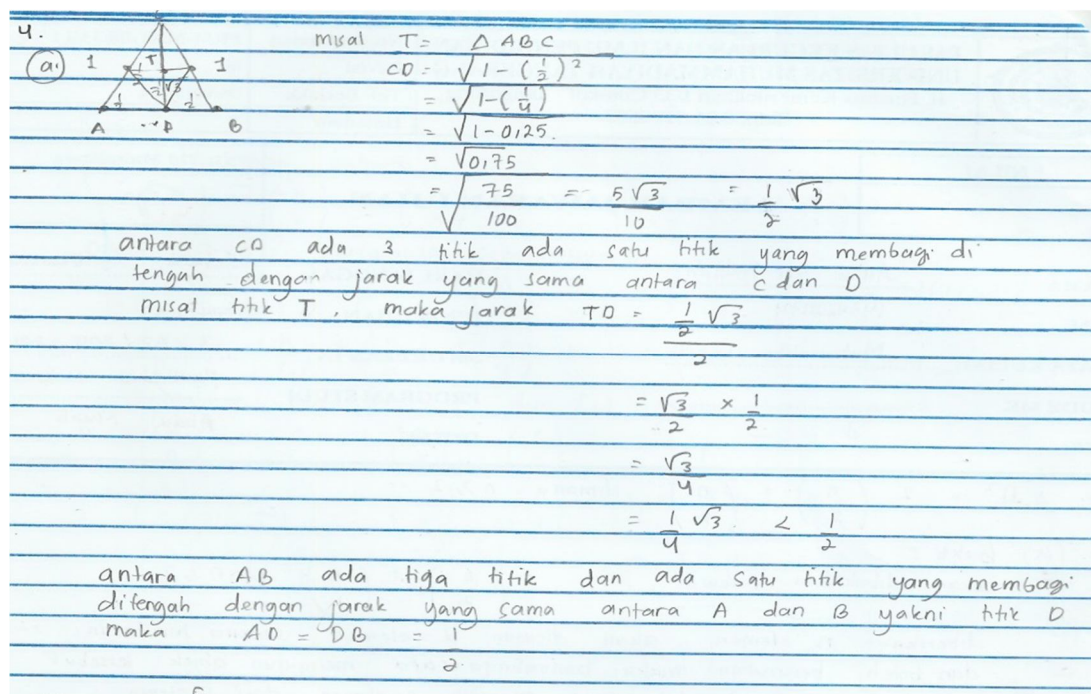 4.
a. 1 T 1 misal T = Δ ABC
CD = √1 - (1/2)²
A D B = √1-(1/4)
= √1-0,25.
= √0,75
= √75/100 = 5√3/10 = 1/2 √3
antara CD ada 3 titik ada satu titik yang membagi di
tengah dengan jarak yang sama antara C dan D
misal titik T, maka jarak TD = 1/2 √3 / 2
= √3/2 × 1/2
= √3/4
= 1/4 √3 < 1/2
antara AB ada tiga titik dan ada satu titik yang membagi
ditengah dengan jarak yang sama antara A dan B yakni titik D
maka AD = DB = 1/2